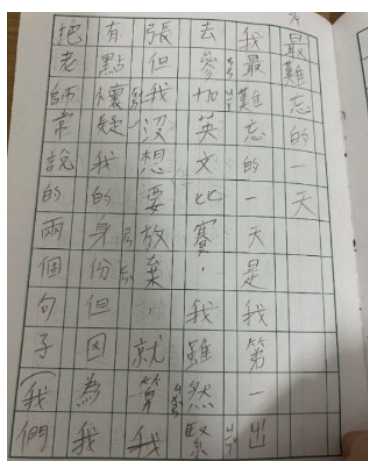 最難忘的一天
我最難忘的一天是我第一出
去參加英文比賽，我雖然緊
張但我沒想要放棄就算我
有點懷疑我的身份但因為我
把老師常說的兩個句子（我們